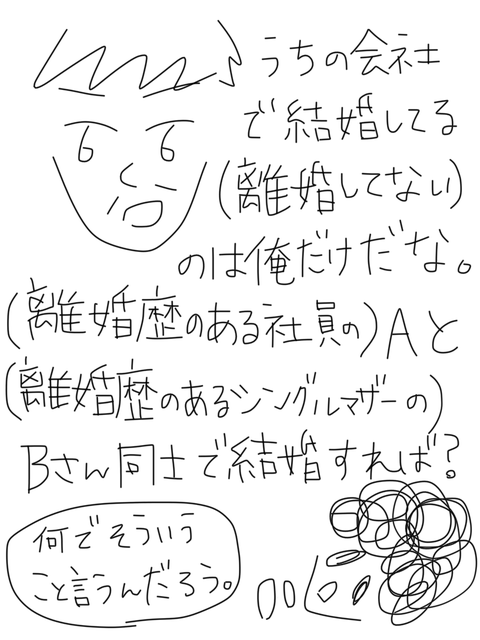 うちの会社
で結婚してる
(離婚してない)
のは俺だけだな。
(離婚歴のある社員の)Aと
(離婚歴のあるシングルマザーの)
Bさん同士で結婚すれば?
何でそういう
こと言うんだろう。